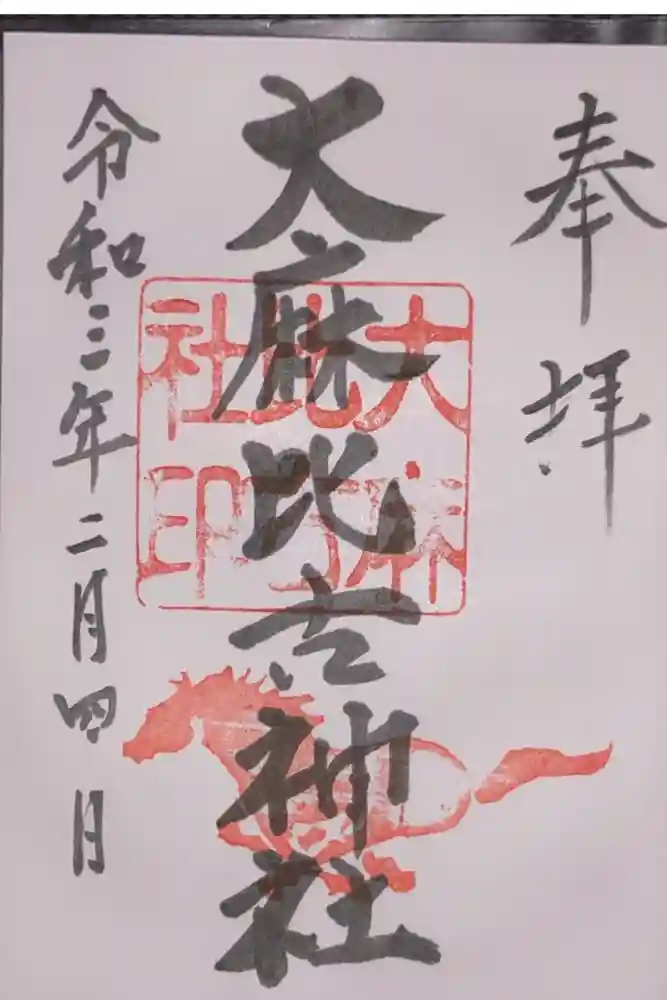 奉拝
大麻比古神社
大麻
比古
社印
令和三年二月四日